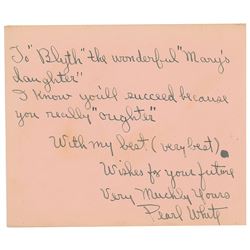 To "Blyth" the wonderful "Mary's
daughter"
I know you'll succeed because
you really "oughter"
With my best. (very best)
Wishes for your future
Very Muchly Yours
Pearl White